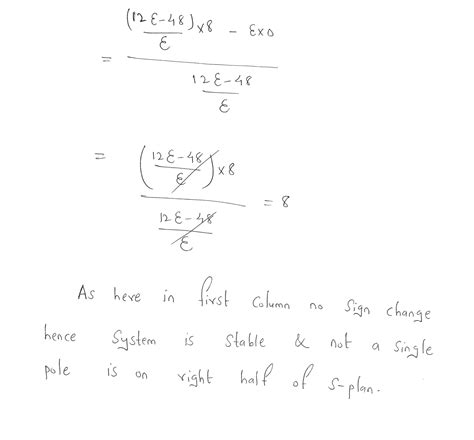 (12 ε-48 / ε) x8 - εx0
=
12 ε-48 / ε
= ((12 ε-48 / ε) x8) / (12 ε-48 / ε) = 8
As here in first column no sign change
hence system is stable & not a single
pole is on right half of s-plan.